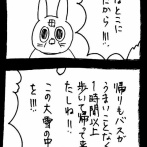 はとこに
だから!!!
帰りもバスが
うまいことなく
1時間以上
歩いて帰って来
たしね!!
この大雪の中
を!!!